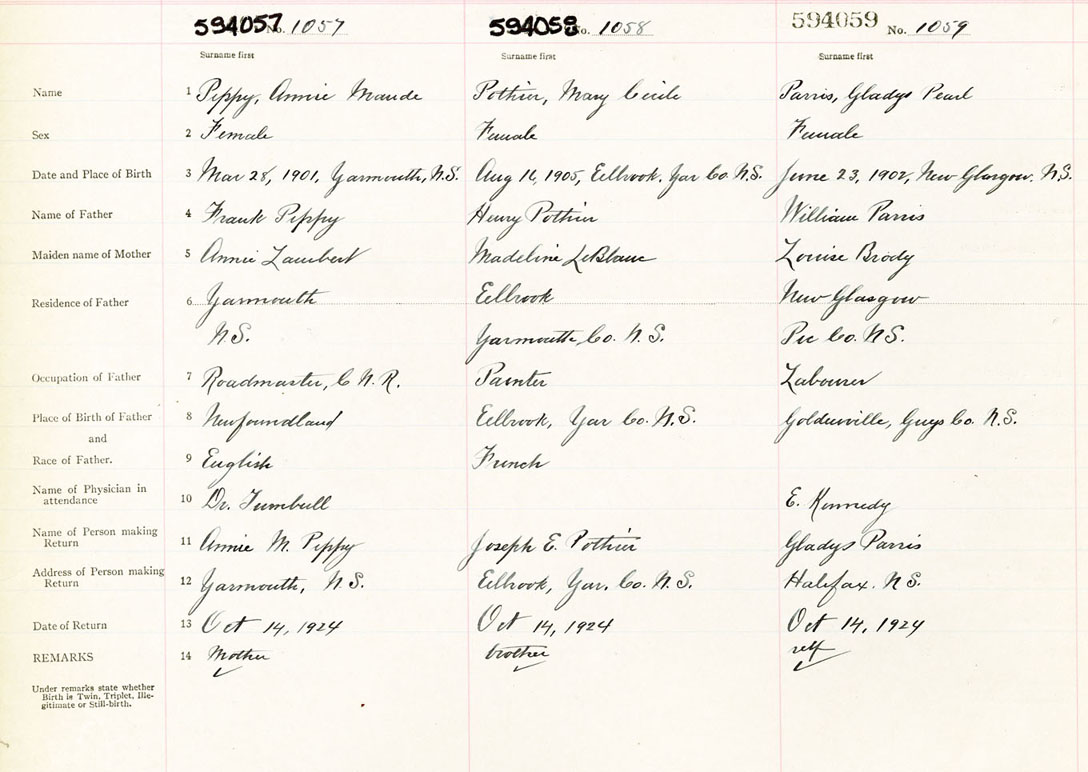 594057 No. 1057 594058 No. 1058 594059 No. 1059
Surname first Surname first Surname first
Name 1 Pippy, Annie Maude Pothier, Mary Cecile Parris, Gladys Pearl
Sex 2 Female Female Female
Date and Place of Birth 3 Mar 28, 1901, Yarmouth, N.S. Aug 11, 1905, Eelbrook, Yar Co. N.S. June 23, 1902, New Glasgow. N.S.
Name of Father 4 Frank Pippy Henry Pothier William Parris
Maiden name of Mother 5 Annie Lambert Madeline LeBlanc Louise Brody
Residence of Father 6 Yarmouth Eelbrook New Glasgow
N.S. Yarmouth, Co. N.S. Pic Co. N.S.
Occupation of Father 7 Roadmaster, C.N.R. Painter Labourer
Place of Birth of Father 8 Newfoundland Eelbrook, Yar Co. N.S. Goldenville, Guys Co. N.S.
and
Race of Father. 9 English French
Name of Physician in
attendance 10 Dr. Turnbull E. Kennedy
Name of Person making
Return 11 Annie M. Pippy Joseph E. Pothier Gladys Parris
Address of Person making
Return 12 Yarmouth, N.S. Eelbrook, Yar. Co. N.S. Halifax. N.S.
Date of Return 13 Oct 14, 1924 Oct 14, 1924 Oct 14, 1924
REMARKS 14 Mother brother self
Under remarks state whether
Birth is Twin, Triplet, Ille-
gitimate or Still-birth.